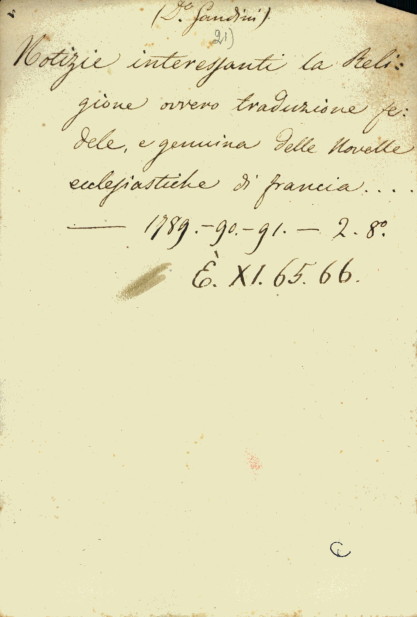 (D.ª Sandini)
21)
Notizie interessanti la Reli-
gione ovvero traduzione fe:
dele, e genuina delle Novelle
ecclesiastiche di francia....
— 1789.-90.-91. — 2. 8º.
È. XI. 65. 66.
C